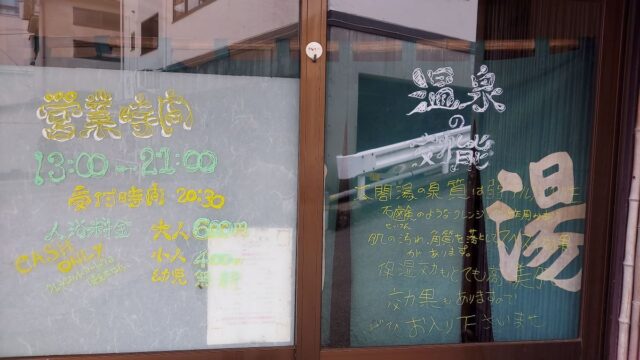 営業時間
13:00~21:00
受付時間 20:30
入浴料金 大人 600円
小人 400円
幼児 無料
CASH
ONLY
温泉
の
効能
湯
湯の泉質は弱アルカリ
石鹸のようなクレンジング 作用が
肌の汚れ、角質を落として
があります。
保湿効果もとても高く美
効果もありますので
ぜひお入り下さいませ